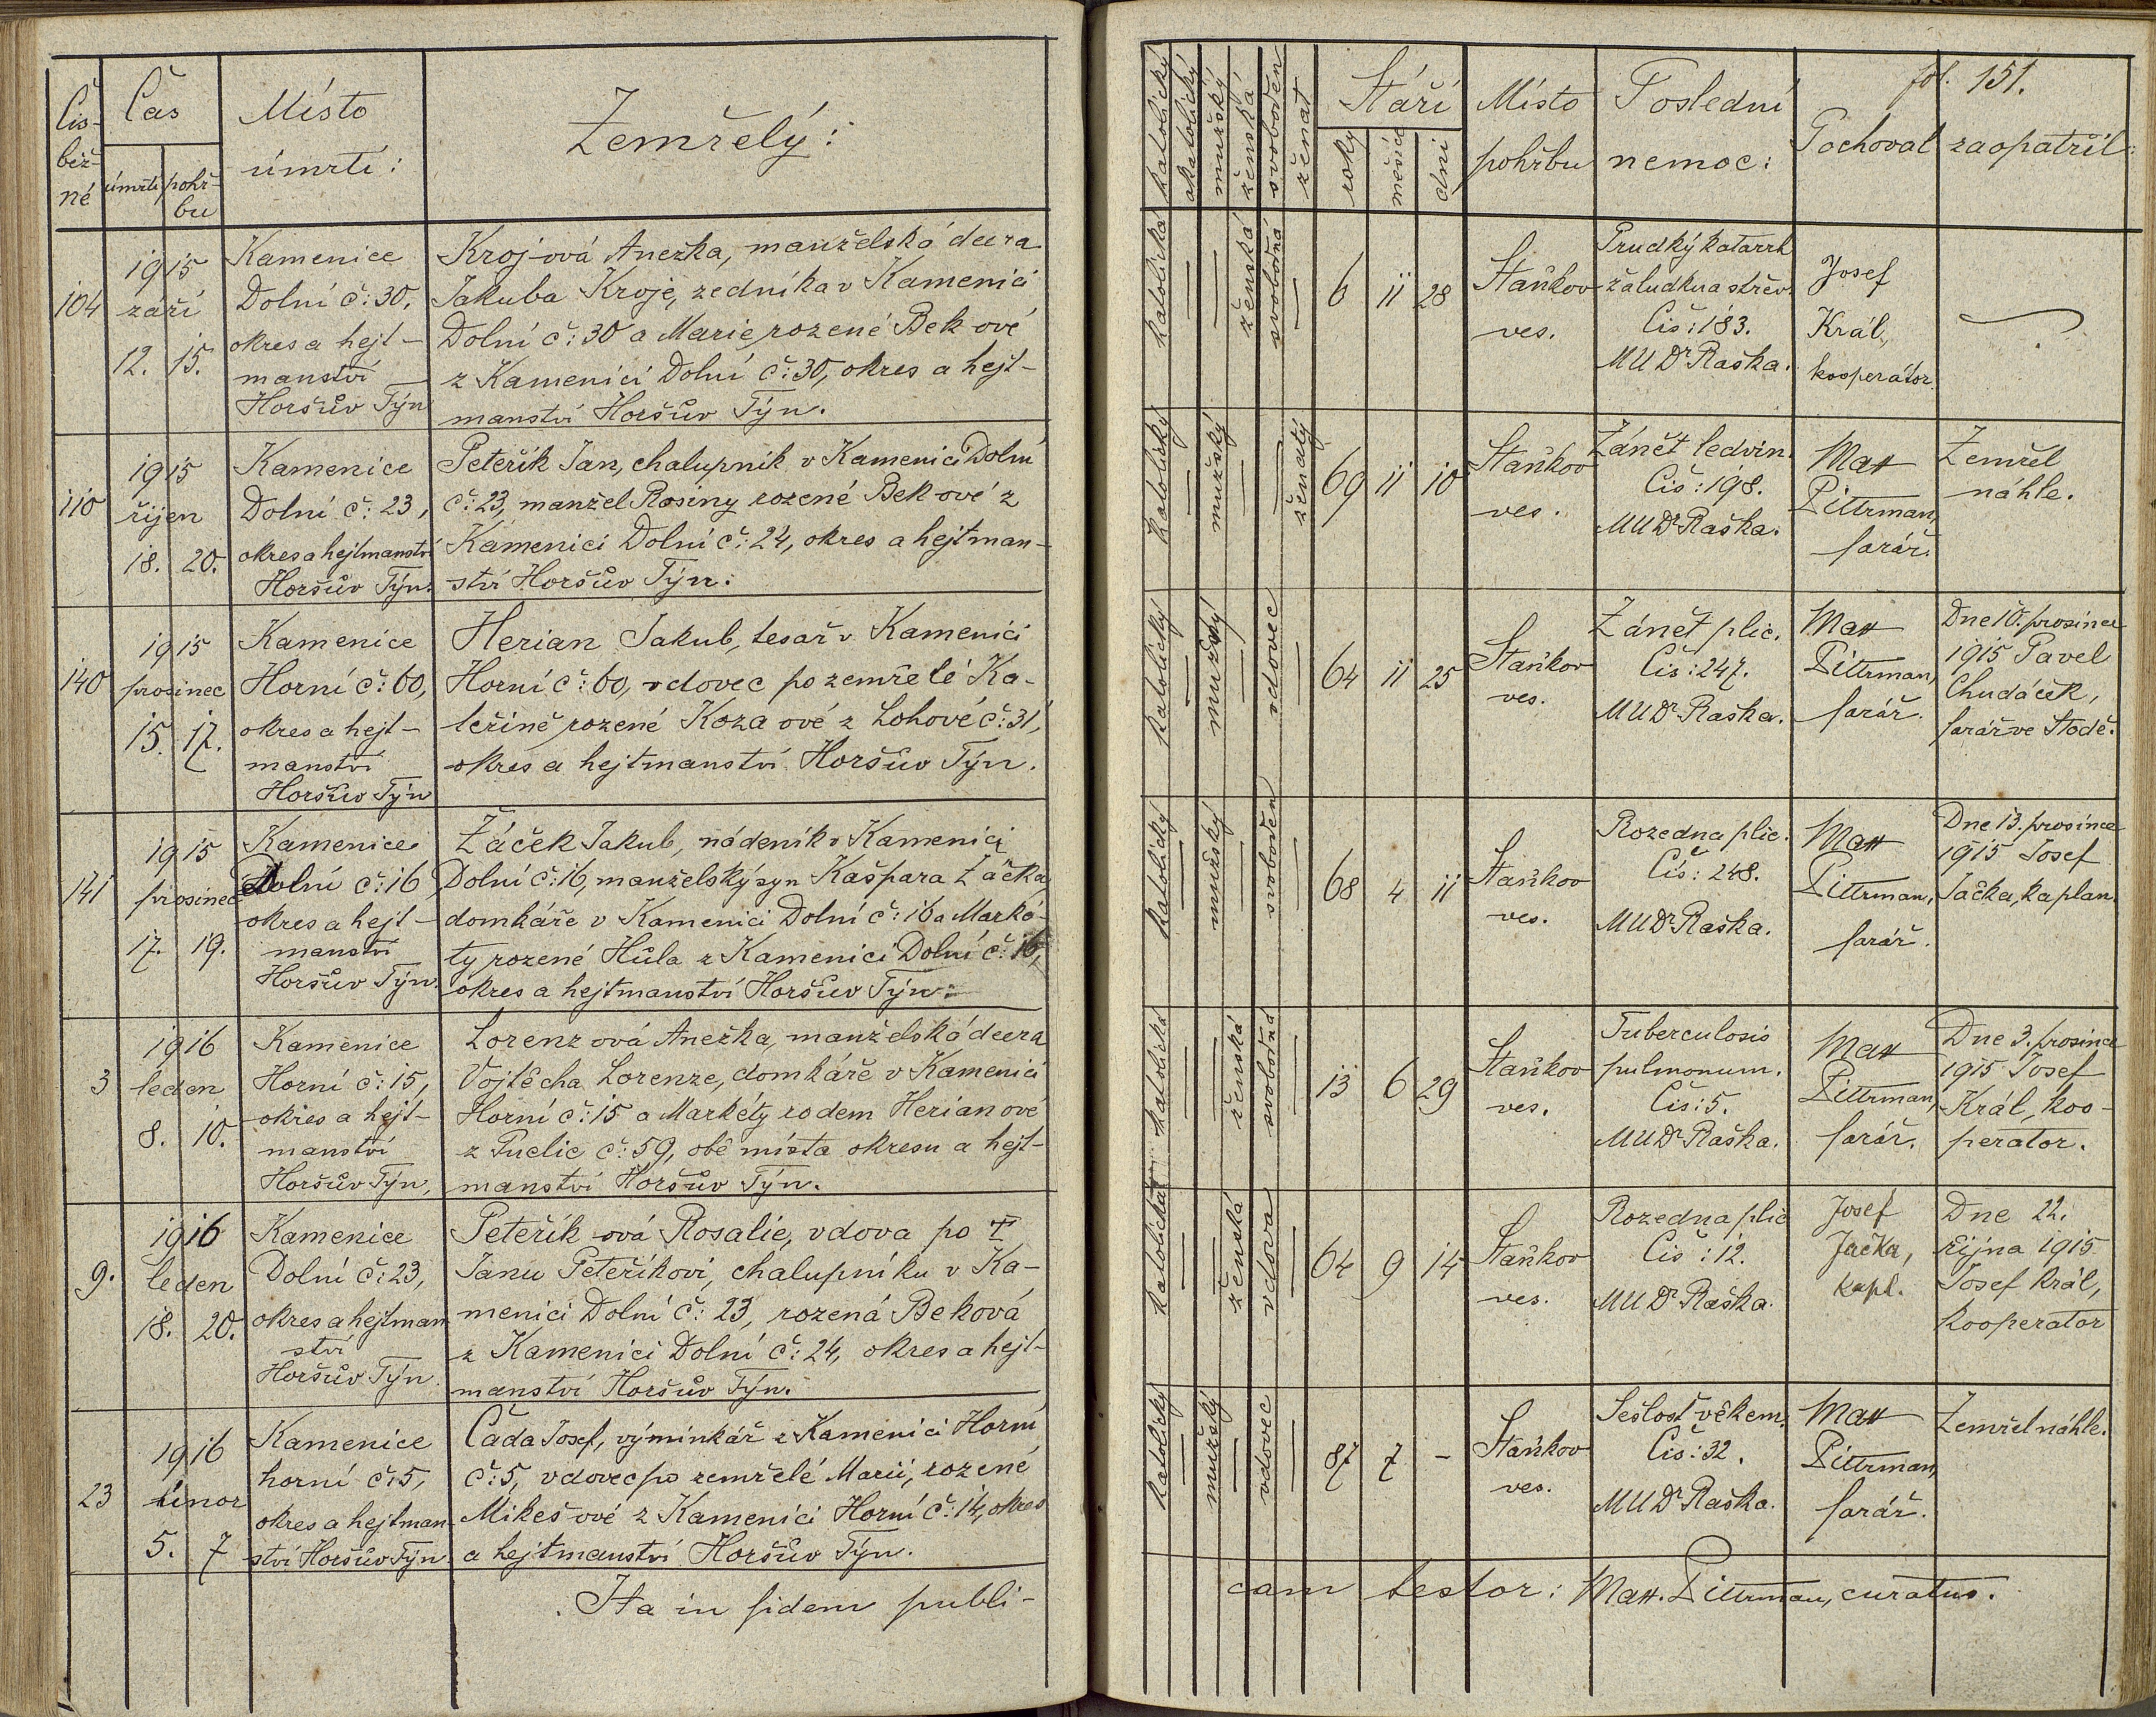 Čís-
běž-
né
Čas
úmrtí
pohř-
bu
Místo
úmrtí:
Zemřelý:
104
1915
září
12. 15.
Kamenice
Dolní č: 30,
okres a hejt-
manství
Horšův Týn
Kroj-ová Anežka, manželská dcera
Jakuba Kroje, zedníka v Kamenici
Dolní č: 30 a Marie, rozené Bek-ové
z Kamenici Dolní č: 30, okres a hejt-
manství Horšův Týn.
110
1915
říjen
18. 20.
Kamenice
Dolní č: 23,
okres a hejtmanství
Horšův Týn.
Peteřík Jan, chalupník v Kamenici Dolní
č: 23, manžel Rosiny rozené Bek-ové z
Kamenici Dolní č: 24, okres a hejtman-
ství Horšův Týn.
140
1915
prosinec
15. 17.
Kamenice
Horní č: 60,
okres a hejt-
manství
Horšův Týn
Herian Jakub, tesař v Kamenici
Horní č: 60, vdovec po zemřelé Ka-
teřině rozené Koza ové z Lohové č: 31,
okres a hejtmanství Horšův Týn.
141
1915
prosinec
17. 19.
Kamenice
Dolní č: 16
okres a hejt-
manství
Horšův Týn.
Žáček Jakub, nádeník v Kamenici
Dolní č: 16, manželský syn Kašpara Žáčka
domkáře v Kamenici Dolní č: 16 a Marké-
ty rozené Hůla z Kamenici Dolní č: 16,
okres a hejtmanství Horšův Týn.
3
1916
leden
8. 10.
Kamenice
Horní č: 15,
okres a hejt-
manství
Horšův Týn,
Lorenz ová Anežka, manželská dcera
Vojtěcha Lorenze, domkáře v Kamenici
Horní č: 15 a Markéty rodem Herian ové
z Puclic č: 59, obě místa okresu a hejt-
manství Horšův Týn.
9.
1916
leden
18. 20.
Kamenice
Dolní č: 23,
okres a hejtman
ství
Horšův Týn
Peteřík-ová Rosalie, vdova po †
Janu Peteříkovi, chalupníku v Ka-
menici Dolní č: 23, rozená Beková
z Kamenici Dolní č: 24, okres a hejt-
manství Horšův Týn.
23
1916
únor
5. 7
Kamenice
horní č: 5,
okres a hejtman-
ství Horšův Týn
Čada Josef, výminkář z Kamenici Horní
č: 5, vdovec po zemřelé Marii, rozené
Mikeš ové z Kamenici Horní č: 14, okres
a hejtmanství Horšův Týn.
Ita in fidem publi-
katolický
akatolický
mužský
ženská
svoboden
ženat
Stáří
roky
měsíců
dní
Místo
pohřbu
Poslední
nemoc:
fol. 151.
Pochoval
zaopatřil:
katolická
ženská
svobodná
6 11 28
Staňkov
ves.
Prudký katarrh
žaludku a střev.
Čís: 183.
MUDr Raška.
Josef
Král,
kooperátor.
katolický
mužský
ženatý
69 11 10
Staňkov
ves.
Zánět ledvin.
Čís: 198.
MUDr Raška.
Matt
Pittrman,
farář.
Zemřel
náhle.
katolický
mužský
vdovec
64 11 25
Staňkov
ves.
Zánět plic.
Čís: 247.
MUDr Raška.
Matt
Pittrman,
farář.
Dne 10. prosince
1915 Pavel
Chudáček,
farář ve Stodě.
katolický
mužský
svoboden
68 4 11
Staňkov
ves.
Rozedna plic.
Čís: 248.
MUDr Raška.
Matt
Pittrman,
farář.
Dne 13. prosince
1915 Josef
Jačka, kaplan.
katolická
ženská
svobodná
13 6 29
Staňkov
ves.
Tuberculosis
pulmonum.
Čís: 5.
MUDr Raška.
Matt
Pittrman,
farář.
Dne 3. prosince
1915 Josef
Král, koo-
perator.
katolická
ženská
vdova
64 9 14
Staňkov
ves.
Rozedna plic
Čís: 12.
MUDr Raška.
Josef
Jačka,
kapl.
Dne 22.
října 1915
Josef Král,
kooperator
katolický
mužský
vdovec
87 7 -
Staňkov
ves.
Sešlost věkem.
Čís: 32.
MUDr Raška.
Matt
Pittrman,
farář.
Zemřel náhle.
cam testor: Matt. Pittrman, curatus.